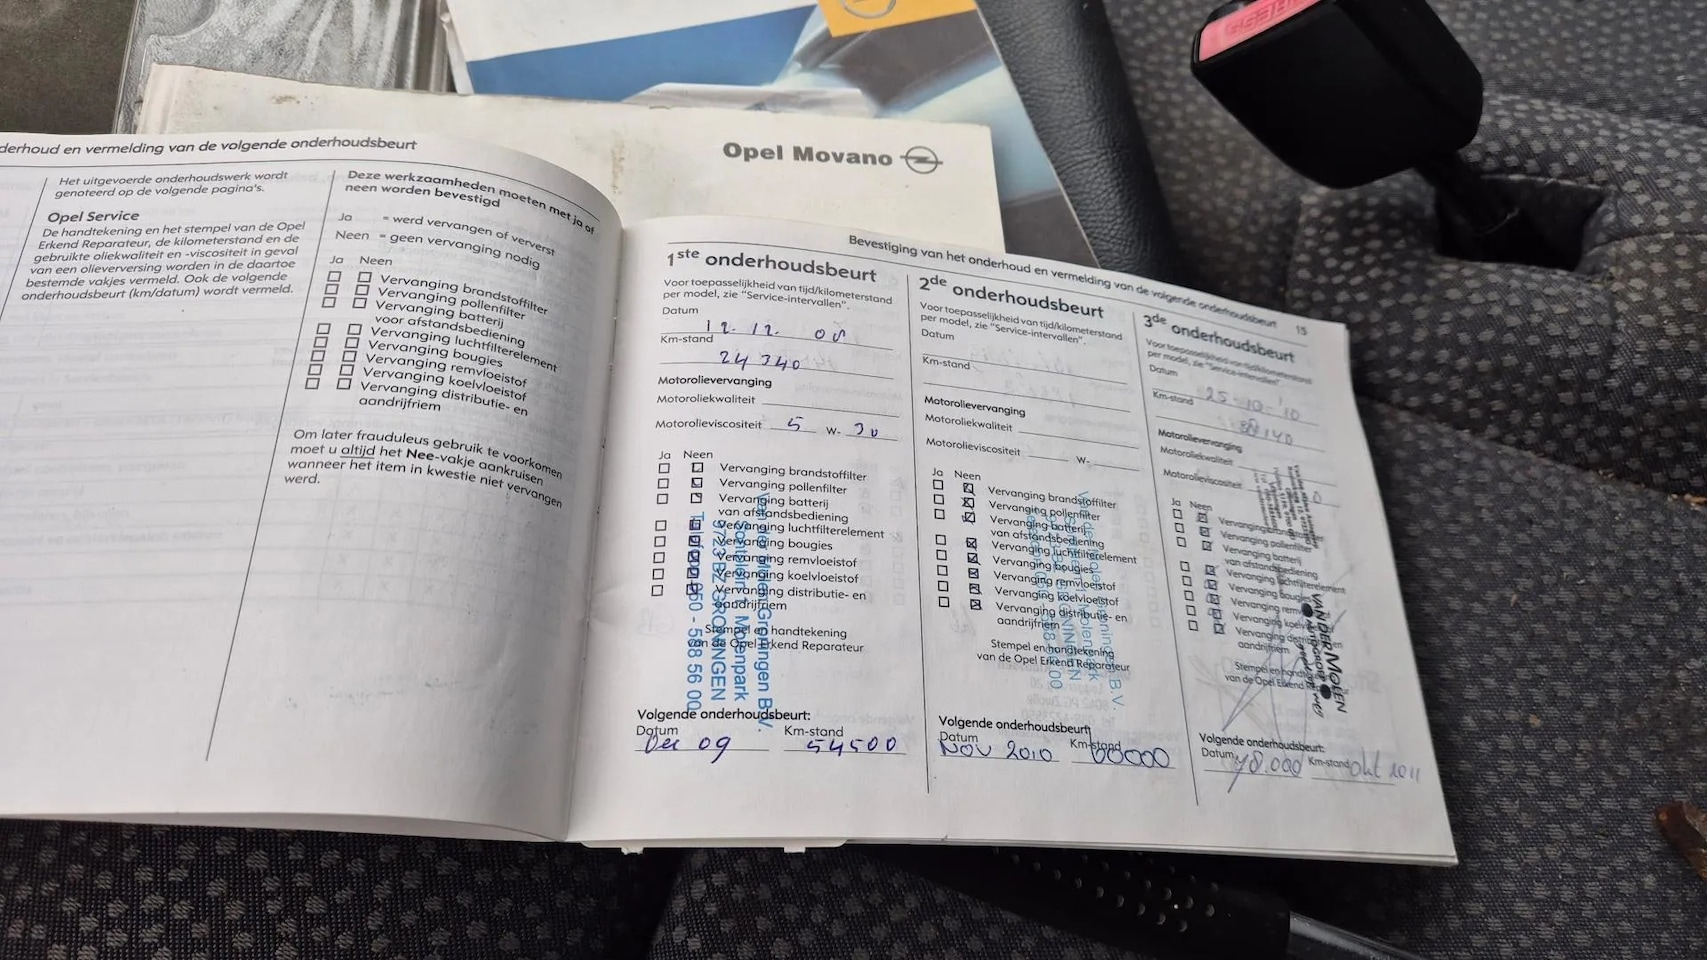 Opel Movano
derhoud en vermelding van de volgende onderhoudsbeurt
Het uitgevoerde onderhoudswerk wordt
genoteerd op de volgende pagina's.
Opel Service
De handtekening en het stempel van de Opel
Erkend Reparateur, de kilometerstand en de
gebruikte oliekwaliteit en -viscositeit in geval
van een olieverversing worden in de daartoe
bestemde vakjes vermeld. Ook de volgende
onderhoudsbeurt (km/datum) wordt vermeld.
Deze werkzaamheden moeten met ja of
neen worden bevestigd
Ja = werd vervangen of ververst
Neen = geen vervanging nodig
Ja Neen
Vervanging brandstoffilter
Vervanging pollenfilter
Vervanging batterij
voor afstandsbediening
Vervanging luchtfilterelement
Vervanging bougies
Vervanging remvloeistof
Vervanging koelvloeistof
Vervanging distributie- en
aandrijfriem
Om later frauduleus gebruik te voorkomen
moet u altijd het Nee-vakje aankruisen
wanneer het item in kwestie niet vervangen
werd.
Bevestiging van het onderhoud en vermelding van de volgende onderhoudsbeurt 15
1ste onderhoudsbeurt
Voor toepasselijkheid van tijd/kilometerstand
per model, zie "Service-intervallen".
Datum
12-12- 08
Km-stand
24340
Motorolievervanging
Motoroliekwaliteit
Motorolieviscositeit 5 W- 30
Ja Neen
Vervanging brandstoffilter
Vervanging pollenfilter
Vervanging batterij
van afstandsbediening
Vervanging luchtfilterelement
Vervanging bougies
Vervanging remvloeistof
Vervanging koelvloeistof
Vervanging distributie- en
aandrijfriem
Stempel en handtekening
van de Opel Erkend Reparateur
Groningen B.V.
Molenpark
9723 BZ GRONINGEN
050 - 568 56 00
Volgende onderhoudsbeurt:
Datum Km-stand
Dec 09 54500
2de onderhoudsbeurt
Voor toepasselijkheid van tijd/kilometerstand
per model, zie "Service-intervallen".
Datum
Km-stand
Motorolievervanging
Motoroliekwaliteit
Motorolieviscositeit W-
Ja Neen
Vervanging brandstoffilter
Vervanging pollenfilter
Vervanging batterij
van afstandsbediening
Vervanging luchtfilterelement
Vervanging bougies
Vervanging remvloeistof
Vervanging koelvloeistof
Vervanging distributie- en
aandrijfriem
Stempel en handtekening
van de Opel Erkend Reparateur
Volgende onderhoudsbeurt
Datum Km-stand
Nov 2010 60000
3de onderhoudsbeurt
Voor toepasselijkheid van tijd/kilometerstand
per model, zie "Service-intervallen".
Datum
25-10-'10
Km-stand
Motorolievervanging
Motoroliekwaliteit
Motorolieviscositeit
Ja Neen
Vervanging brandstoffilter
Vervanging pollenfilter
Vervanging batterij
van afstandsbediening
Vervanging luchtfilterelement
Vervanging bougies
Vervanging
Vervanging
Vervanging
aandrijfriem
VAN DER MOLEN
Stempel en
van de Opel Erkend
Volgende onderhoudsbeurt:
Datum Km-stand
48.000 Okt 2011